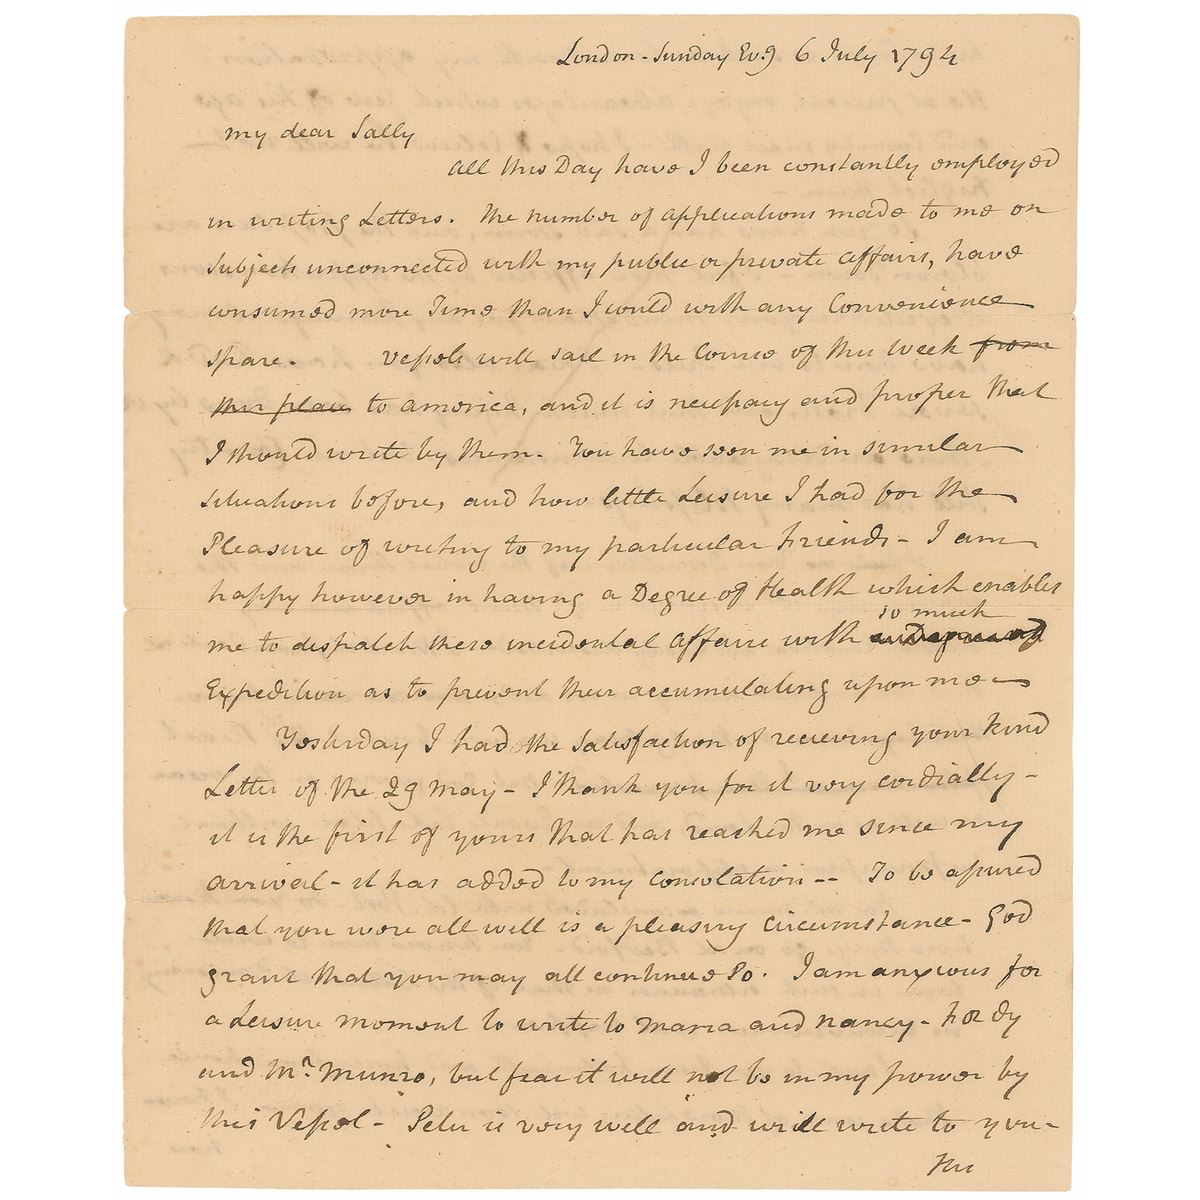 London - Sunday Evg 6 July 1794
my dear Sally
all this Day have I been constantly employed
in writing Letters. The number of applications made to me on
Subjects unconnected with my public or private affairs, have
consumed more Time than I could with any Convenience
spare. Vessels will sail in the Course of this Week from
this place to america, and it is necessary and proper that
I should write by them. You have seen me in similar
situations before, and how little Leisure I had for the
Pleasure of writing to my particular Friends - I am
happy however in having a Degree of Health which enables
so much
me to dispatch these incidental affairs with
Expedition as to prevent their accumulating upon me -
Yesterday I had the Satisfaction of recieving your kind
Letter of the 29 May - I thank you for it very cordially -
it is the first of yours that has reached me since my
arrival - it has added to my Consolation -- To be assured
that you were all well is a pleasing Circumstance - God
grant that you may all continue so. I am anxious for
a Leisure moment to write to Maria and Nancy - to Dy
and Mr. Munro, but fear it will not be in my power by
this Vessel - Peter is very well and will write to you -
His